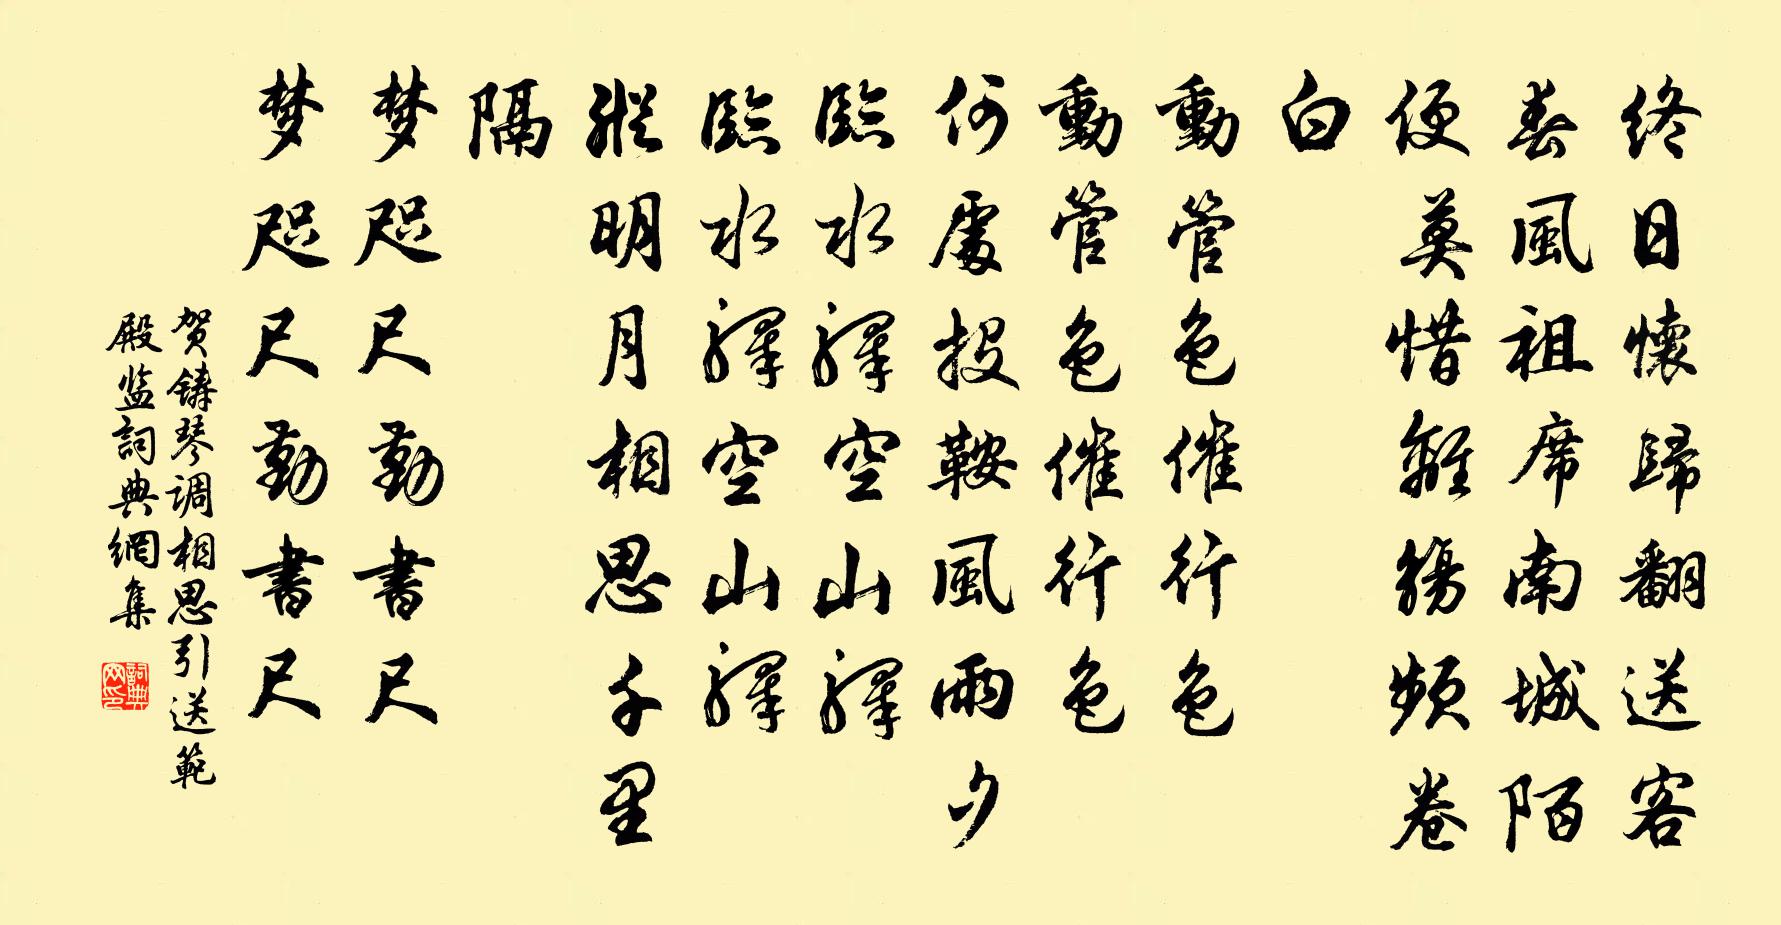 終日懷歸翻送客
春風祖席南城陌
便莫惜離觴頻卷
白
動管色催行色
動管色催行色
何處投鞍風雨夕
臨水驛空山驛
臨水驛空山驛
縱明月相思千里
隔
梦咫尺勤書尺
梦咫尺勤書尺
贺鑄琴调相思引送範
殿监詞典網集
詞典
网印